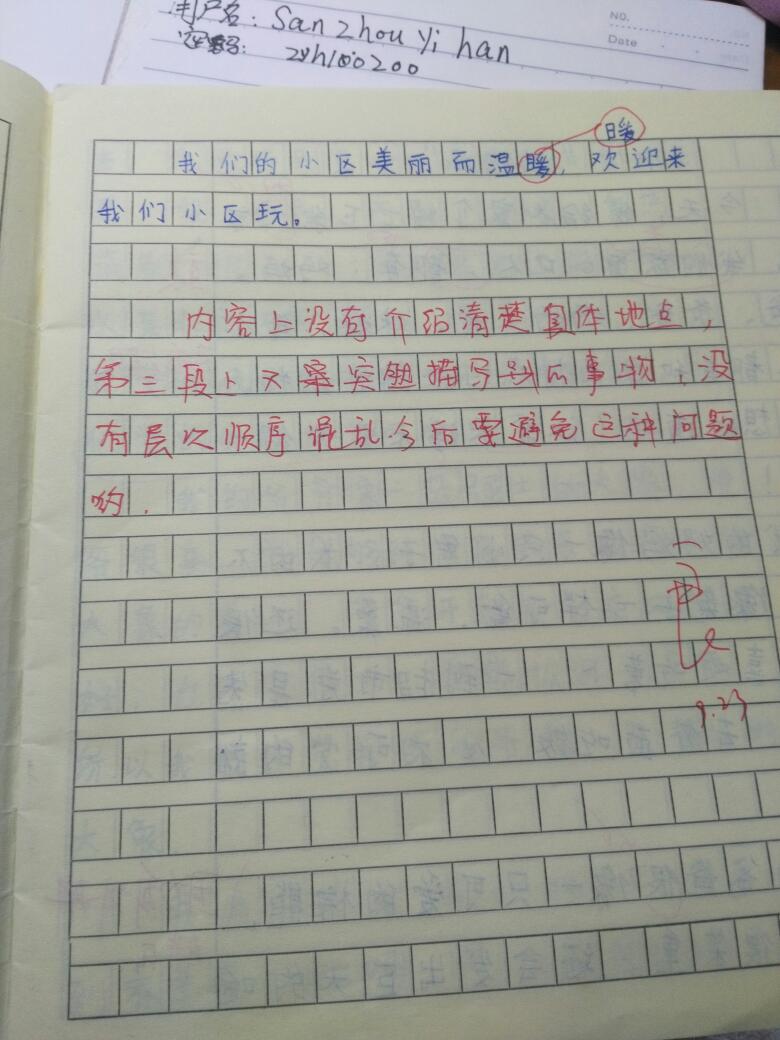 用户名: SanzhouYihan
zyh100200
NO.
Date
暖
我们的小区美丽而温暖，欢迎来
我们小区玩。
内容上没有介绍清楚具体地点，
第三段上又突然描写别的事物，没
有层次顺序混乱今后要避免这种问题
哟.
9.23